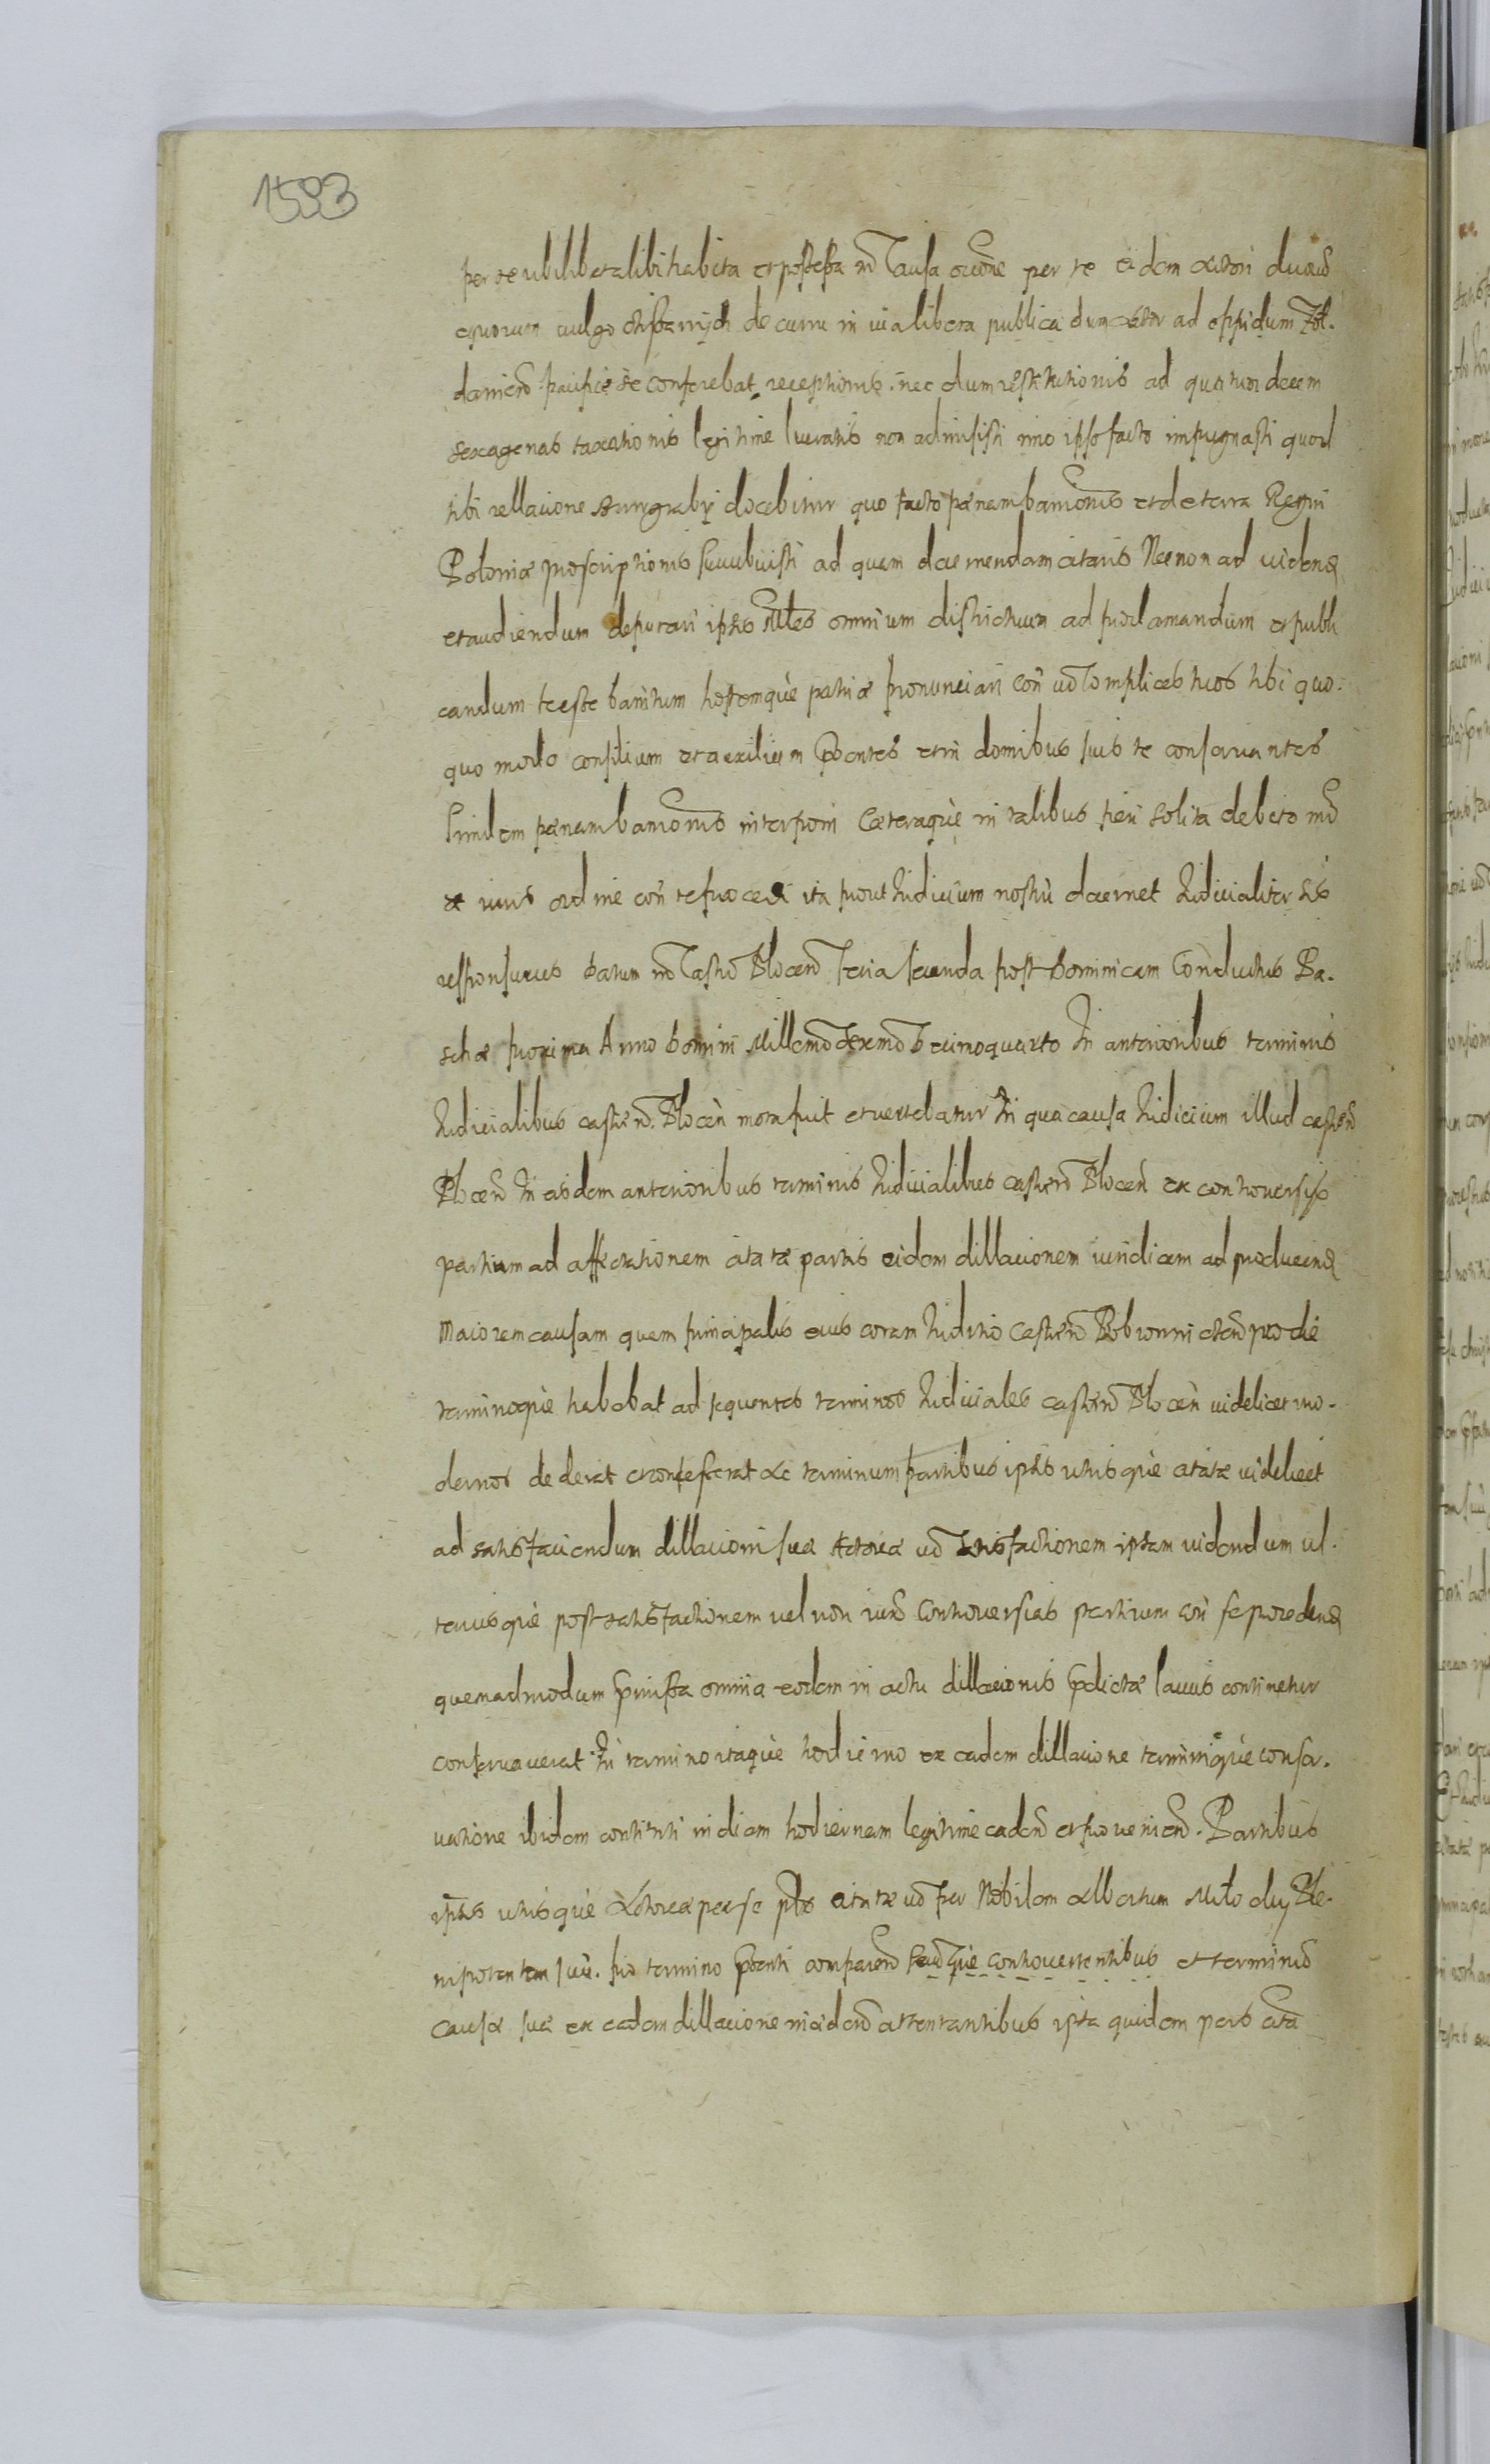 1593
per te ubilibet alibi habita et possessa in Causa occoñe per te eidem actori duorũ
equorum vulgo de curru in via libera publica dum actor ad oppidum
daniecz pacifice se conferebat receptionis nec dum restitutionis ad quatuordecem
sexagenas taxationis legitime lucratis non admisisti imo ipso facto impugnasti quod
tibi rellacione Burgrabÿ docebitur quo facto pænam bannionis et de terra Regni
Poloniæ proscriptionis succubuisti ad quam decernendam citaris Necnon ad videnđ
et audiendum deputari ipsis omnium districtuum ad proclamandum et publi
candum te esse banitum hostemque patriæ pronunciari coñ vo Complices tuos tibi quo.
quo modo consilium et auxilium Dantes et in domibus suis te conservantes
Similem pænam bannionis interponi Cæteraque in talibus fieri solita debito mõ
et iuris ordine coñ te procedi ita prout Iudicium nostrũ decernet Iudicialiter sis
responsurus Datum in Castro Plocen̄ feria secunda post Dominicam Conductus Pa.
schæ proxima Anno Domini Millemõ Sexmõ Decimoquarto In anterioribus terminis
Iudicialibus castreñ. Plocen̄ mota fuit et vertebatur In qua causa Iudicium illud castreñ
Plocen̄ In eisdem anterioribus terminis Iudicialibus castreñ Plocen̄ ex controversiis
partium ad affectationem citatæ partis eidem dillacionem iuridicam ad producenđ
Maiorem causam quam principalis eius coram Iuditio Castreñ Bobrownicteñ pro die
terminoque habebat ad sequentes terminos Iudiciales castreñ Plocen̄ videlicet mo.
dernos dederat et concesserat Ac terminum partibus ipsis utrisque citatæ videlicet
ad satisfaciendum dillacioni suæ Actoreæ vo satisfactionem ipsam videndum ul.
teriusque post satisfactionem vel non iuxta controversias partium coñ se procedenđ
quemadmodum præmissa omnia eodem in actu dillacionis prædictæ lacius continetur
conservaverat In termino itaque hodierno ex eadem dillacione terminique conser.
vatione ibidem contenti in diem hodiernam legitime cadeñ et proveniеñ. Partibus
ipsis utrisque Actorea per se ipsos citata vo per Nobilem Albertum
nipotentem suũ. pro termino præsenti compareñ seque controvertentibus et terminũ
causæ suæ ex eadem dillacione incideñ attentantibus ipsa quidem pars cita